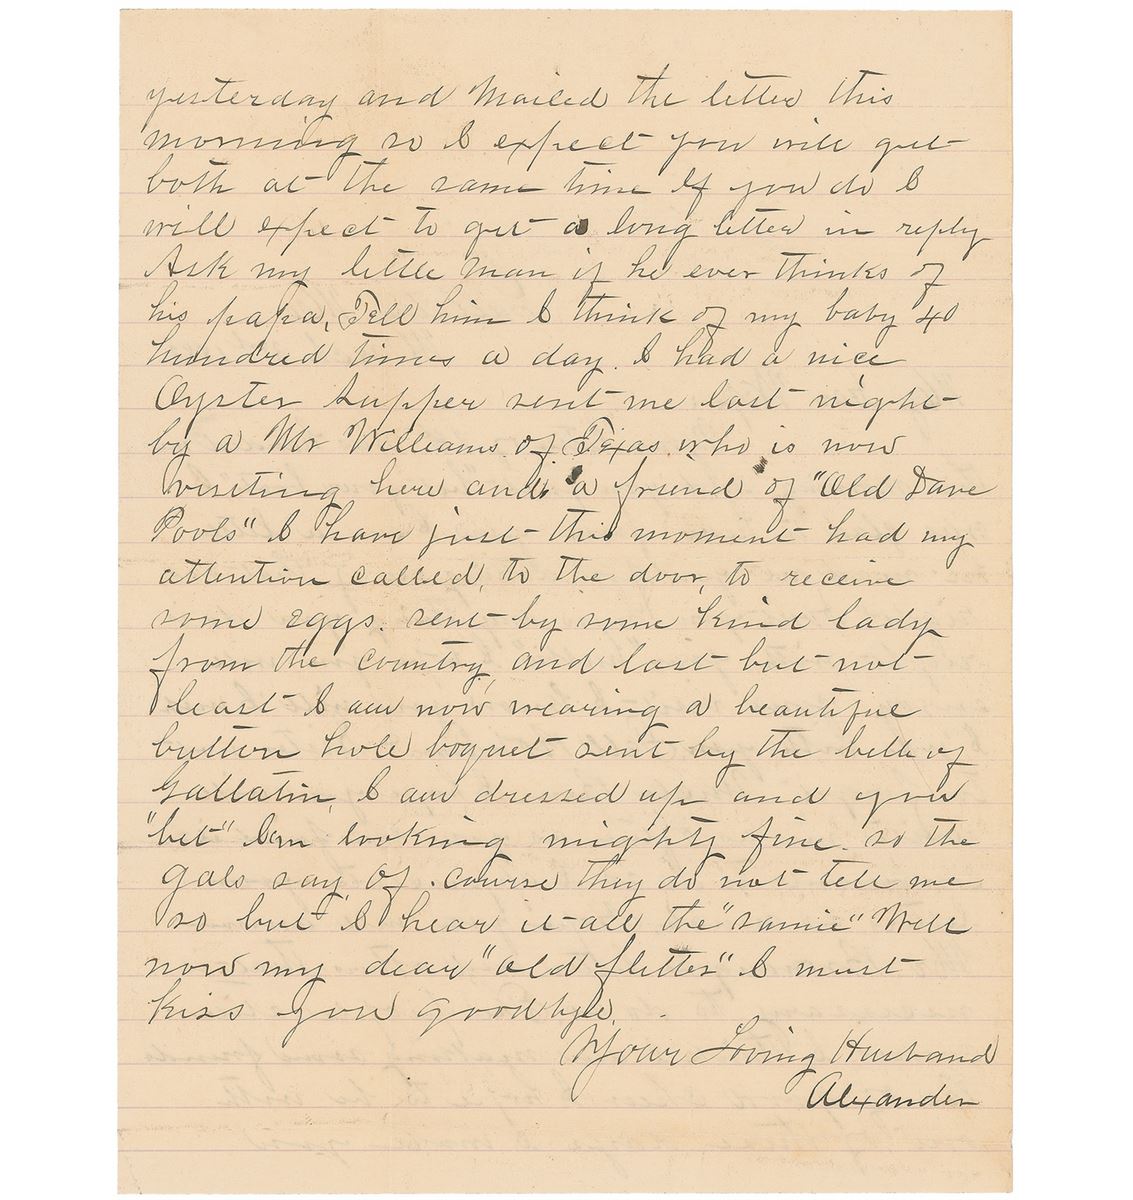 yesterday and Mailed the letter this
morning so I expect you will get
both at the same time If you do I
will expect to get a long letter in reply
Ask my little Man if he ever thinks of
his papa, Tell him I think of my baby 40
hundred times a day. I had a nice
Oyster Supper sent me last night
by a Mr Williams of Texas who is now
visiting here and a friend of "Old Dave
Pools" I have just this moment had my
attention called, to the door, to receive
some eggs. sent by some kind lady
from the country, and last but not
least I am now wearing a beautiful
button hole boquet sent by the belle of
Gallatin, I am dressed up and you
"bet" I'm looking mighty fine. so the
gals say Of course they do not tell me
so but I hear it all the "samie" Well
now my dear "old flitter" I must
kiss you goodbye.
Your Loving Husband
Alexander